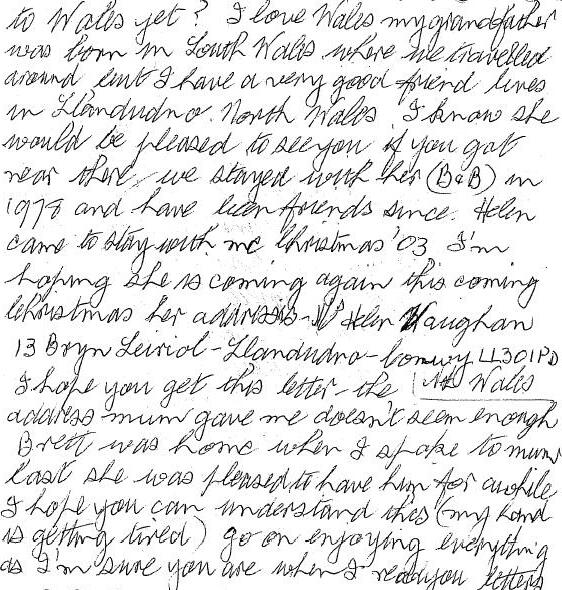 to Wales yet? I love Wales my grandfather
was born in South Wales where we travelled
around but I have a very good friend lives
in Llandudno. North Wales I know she
would be pleased to see you if you got
near there, we stayed with her (B&B) in
1978 and have been friends since. Helen
came to stay with me Christmas '03 I'm
hoping she is coming again this coming
Christmas her address - Helen Vaughan
13 Bryn Seiriol - Llandudno - Conwy LL301PD
I hope you get this letter - the Nth Wales
address mum gave me doesn't seem enough
Brett was home when I spoke to mum
last she was pleased to have him for awhile
I hope you can understand this (my hand
is getting tired) go on enjoying everything
as I'm sure you are when I read you letters